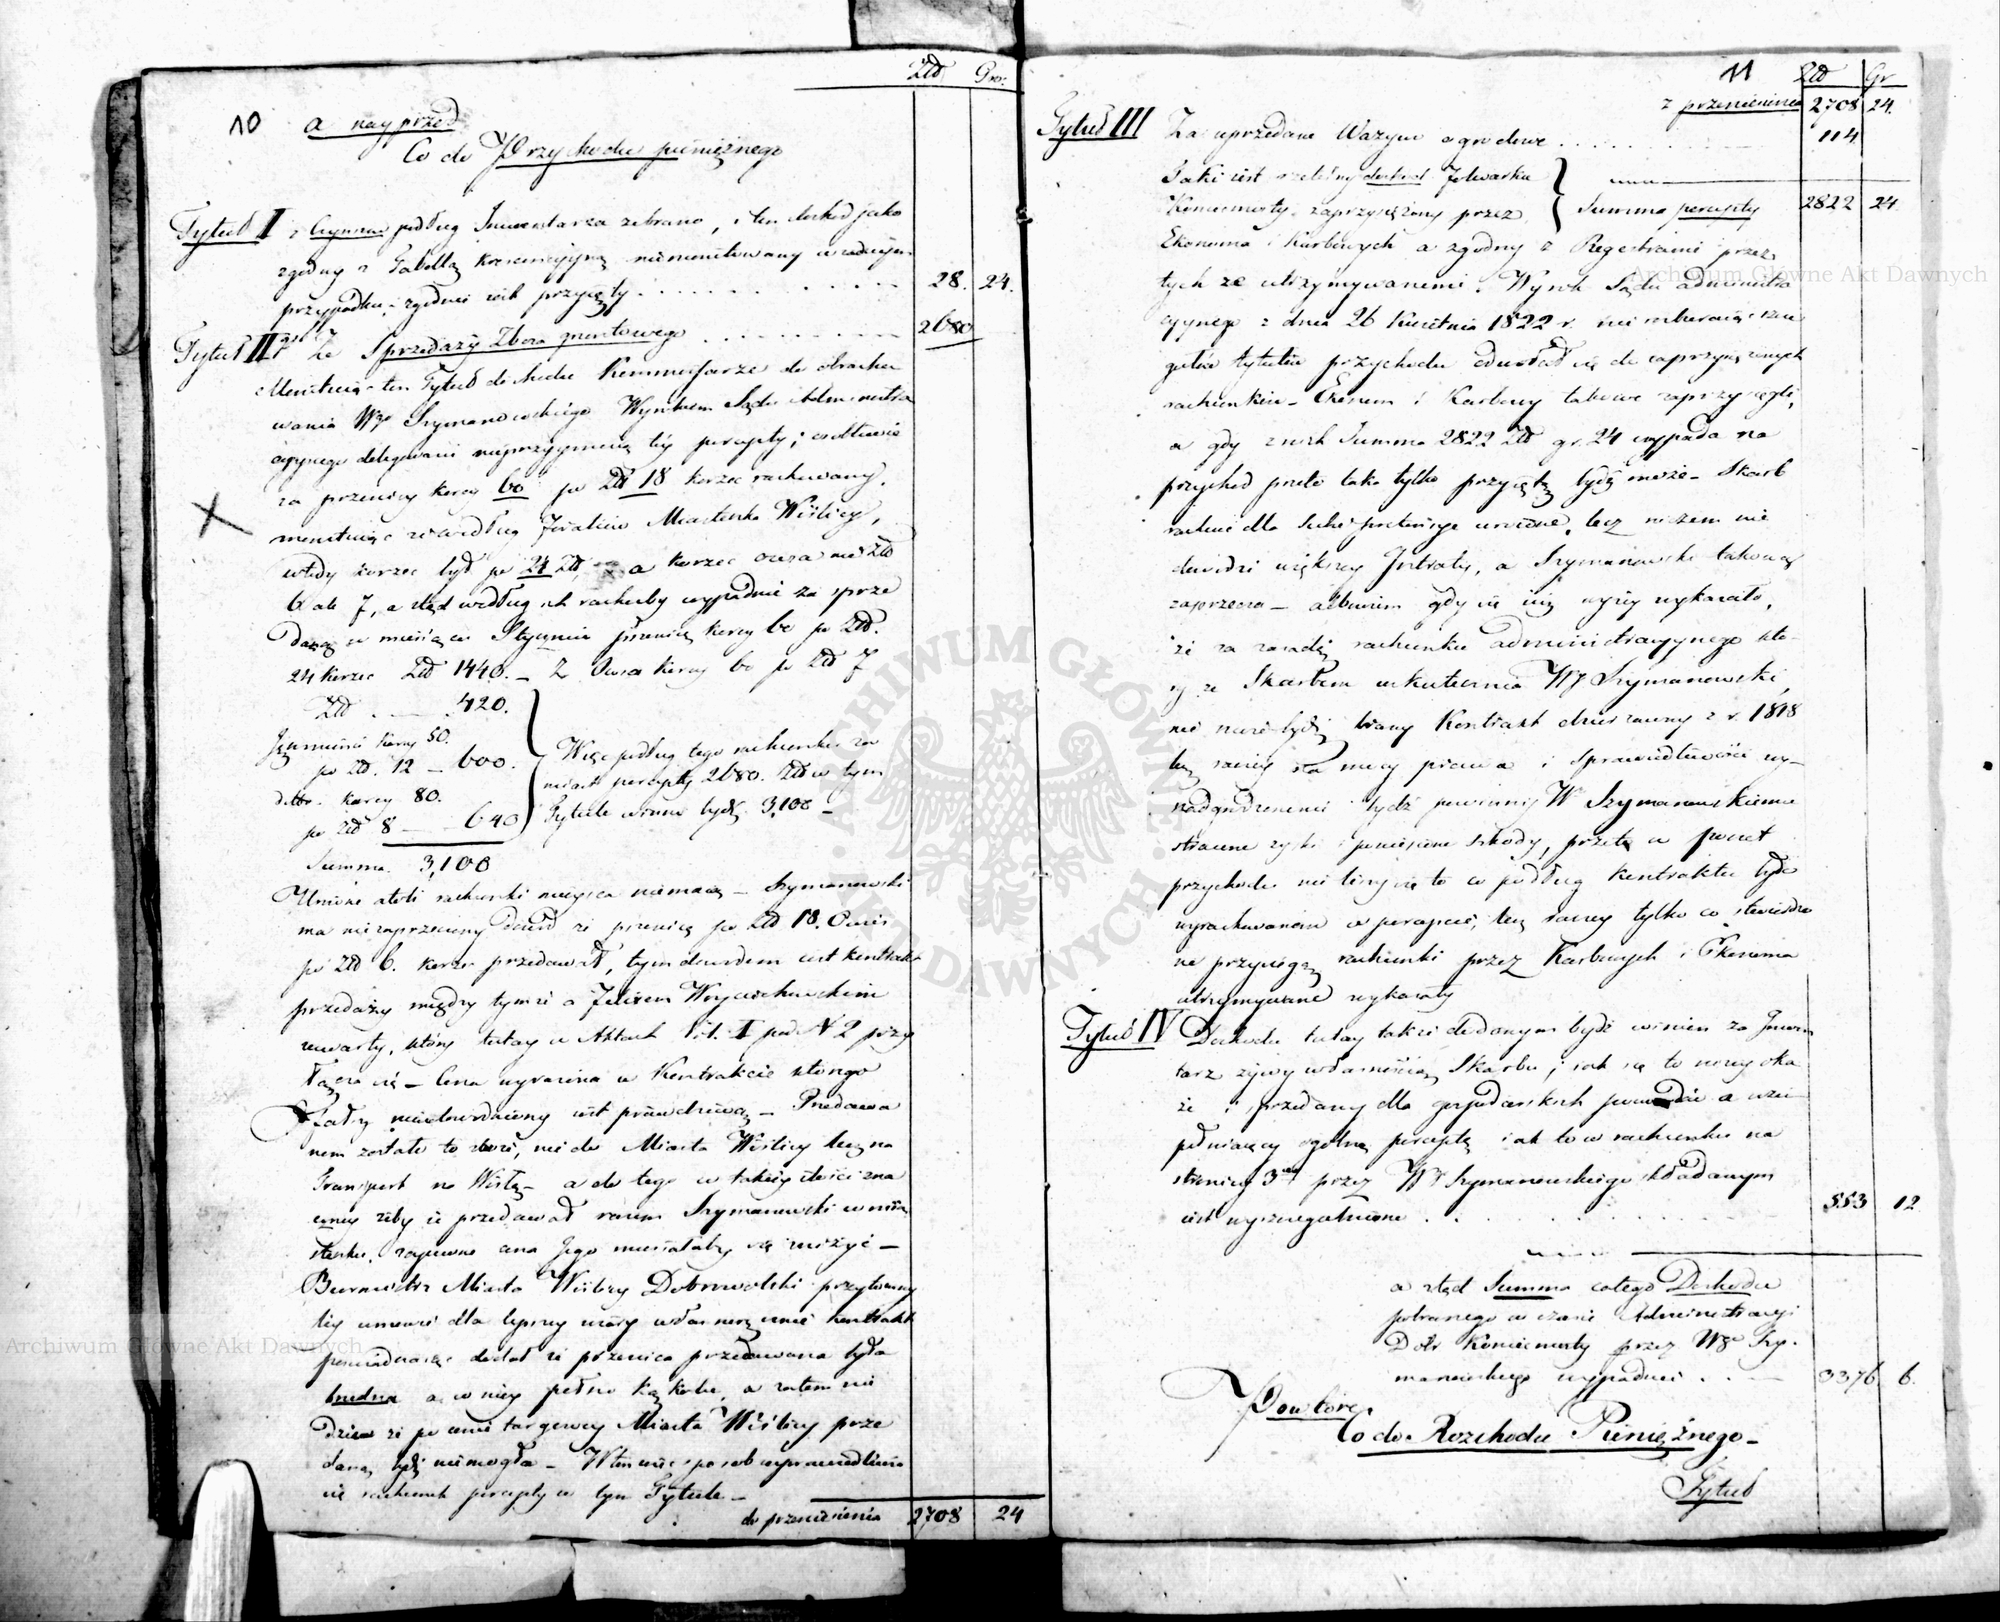 Złt Gro:
10 a nayprzód
Co do Przychodu pieniężnego
Tytuł I z Czynszu podług Inwentarza zebrano, i ten dochód jako
zgodny z Tabellą niemonitowany w żadnym
przypadku, zgodnie jest przyjęty . . . . . 28. 24.
Tytuł II Ze Sprzedaży Zboża gruntowego . . . . 2680
Monituiąc ten Tytuł dochodu Kommissarze do obracho
wania Wgo Szymanowskiego Wyrokiem Sądu Administra
cyynego delegowani nieprzyymuią tey percepty;
za pszenicy korcy 60 po Złt 18 korzec rachowany,
monituiąc że według Miasteczka Wiślicy,
wtedy korzec był po 24 Złt, a korzec owsa nie Złt
6 ale 7, a stąd według ich rachuby wypadnie za sprze
daną w miesiącu Styczniu pszenicę korcy 60 po Złt.
24 korzec Złt 1440. – Z Owsa korcy 60 po Złt 7
Złt . — 420.
Jęczmienia korcy 50.
po Złt. 12 – 600.
korcy 80.
po Złt 8 — 640
Summa 3,100
Więc podług tego rachunku za
miast percepty 2680. Złt w tym
Tytule winno bydź 3,100 –
rachunki mieysca niemaią – Szymanowski
ma niezaprzeczony dowód że pszenicę po Złt 18. Owies
po Złt 6. korzec przedawał, tym dowodem iest kontrakt
przedaży między tymże a Felixem Woyciechowskim
zawarty, który tutay w Aktach Vol. I pod N 2 przy
łącza się – Cena wyrażona w Kontrakcie którego
fałsz nieudowodniony iest prawdziwą – Przedawa
nem zostało to zboże, nie do Miasta Wiślicy lecz na
Transport na Wisłę – a do tego w takiey ilości zna
czney żeby ie przedawał razem Szymanowski w mia
steczku, zapewne cena Jego musiałaby się zniżyć –
Burmistrz Miasta Wiślicy Dobrowolski przytomny
tey umowie dla lepszey wiary własnoręcznie kontrakt
poświadczaiąc dodał że pszenica przedawana była
brudna a w niey pełno kąkolu, a zatem nie
dziw że po cenie targowey Miasta Wiślicy prze
daną bydź niemogła – W ten więc sposób usprawiedliwia
się rachunek percepty w tym Tytule –
do przeniesienia 2708 24
11 Złt Gr
z przeniesienia 2708 24.
Tytuł III Za sprzedane Warzywo ogrodowe . . . . . 114
Taki iest dochód Folwarku
Koniecmosty zaprzysiężony przez
Summa percepty 2822 24.
Ekonoma i Karbowych a zgodny z Regestrami przez
tych że utrzymywanemi. Wyrok Sądu administra
cyynego z dnia 26 Kwietnia 1822 r. nie wchodząc w szcze
guły tytułu przychodu odwołał się do zaprzysiężonych
rachunków – Ekonom i Karbowy takowe zaprzysięgli,
a gdy z nich Summa 2822 Złt gr. 24 wypada na
przychód przeto taka tylko przyiętą bydź może – Skarb
rachuie dla siebie pretensye urojone, lecz niczem nie
dowodzi większey Intraty, a Szymanowski takowey
zaprzecza – albowiem gdy się iuż wyżey wykazało,
że za zasadę rachunku administracyynego
że Skarbem uskutecznia Wy Szymanowski,
nie może bydź brany Kontrakt dzierżawny z r. 1818
lecz raczey na mocy prawa i Sprawiedliwości wy–
nadgrodzonemi bydź powinny W Szymanowskiemu
stracone zyski i poniesione szkody, przeto w poczet
przychodu nie liczy się to co podług kontraktu było
wyrachowanem w percepcie, lecz raczey tylko co stwierdzo
ne przysięgą rachunki przez Karbowych i Ekonoma
utrzymywane wykazały
Tytuł IV Dochodu tutay także dodanym bydź winien za Inwen
tarz żywy własnością Skarbu; iak się to niżey oka
że i przedany dla gospodarskich powodów a uzu–
pełniaiący ogólną perceptę iak to w rachunku na
stronicy 3ciey przez Wgo Szymanowskiego składanym
iest wyszczególnione . . . . . 553 12
a stąd Summa całego Dochodu
pobranego w czasie Administracyi
Dóbr Koniecmosty przez Wgo Szy.
manowskiego wypadnie . . . 3376 6.
Powtóre
Co do Rozchodu Pieniężnego –
Tytuł
Archiwum Główne Akt Dawnych
Archiwum Główne Akt Dawnych
ARCHIWUM GŁÓWNE AKT DAWNYCH